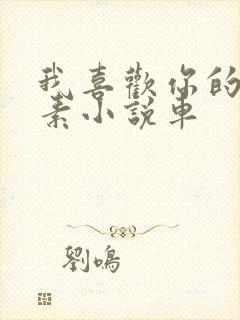 我喜歡你的
素小說車
劉鳴